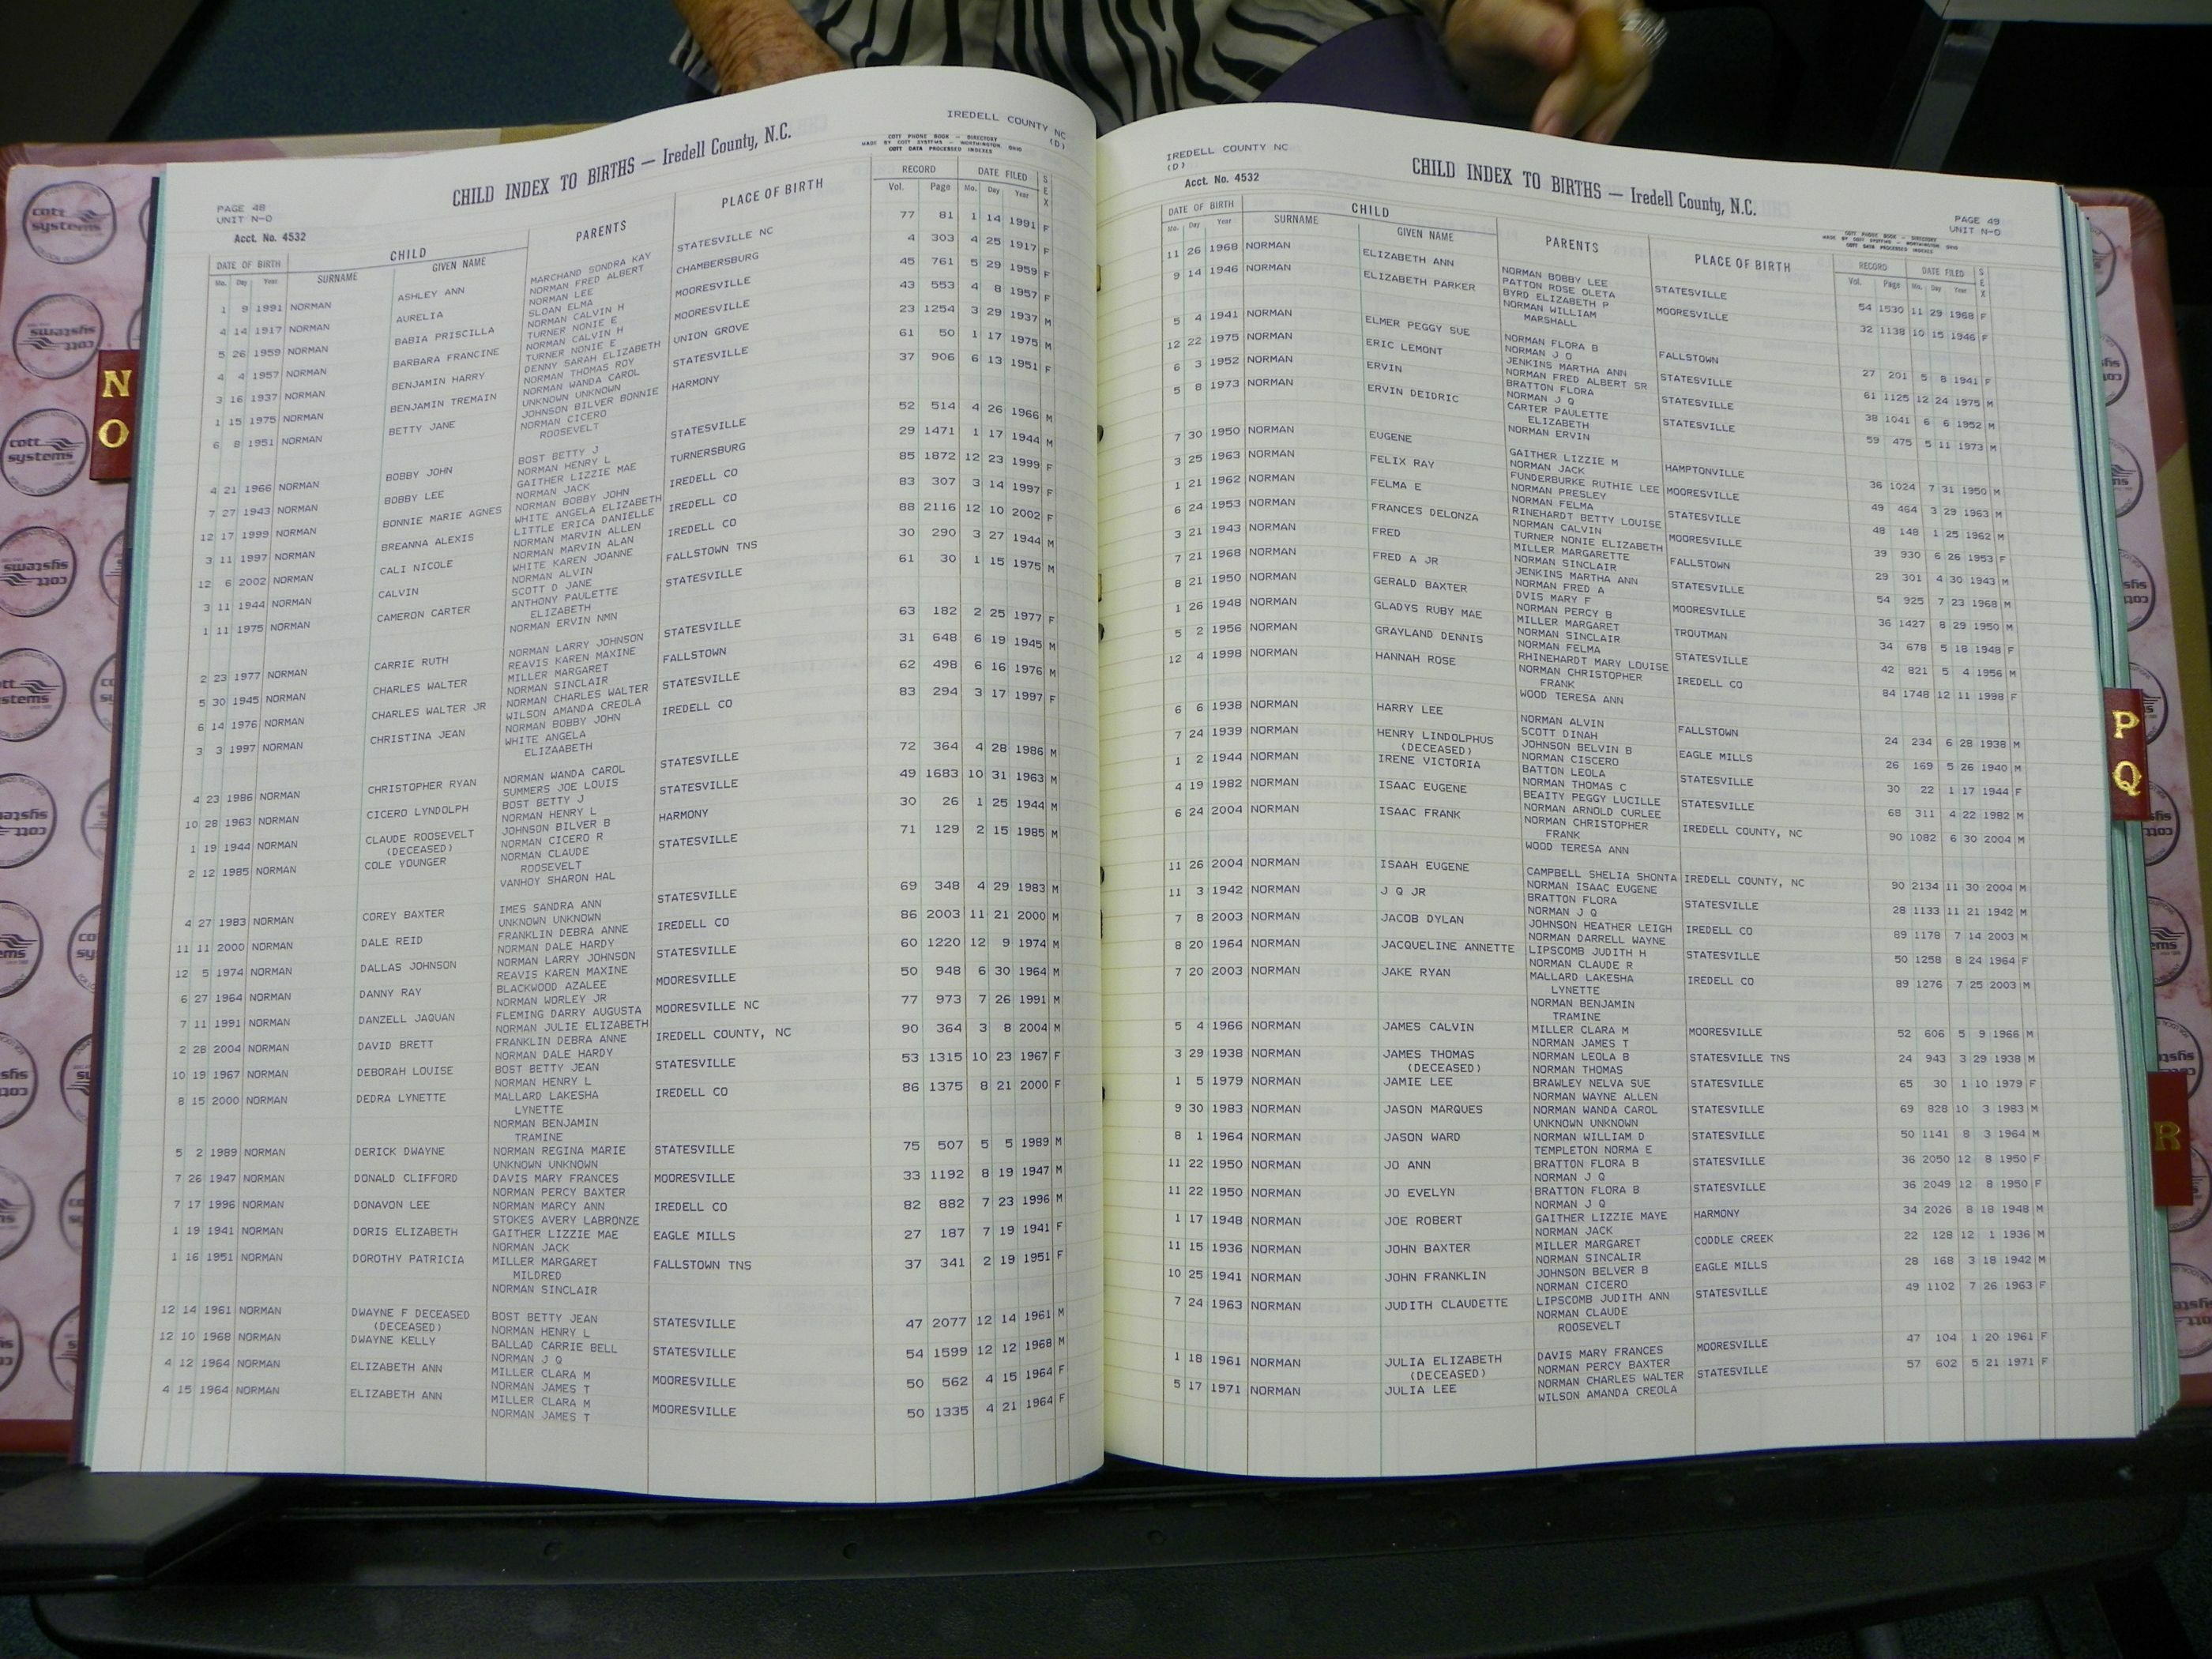 IREDELL COUNTY NC
(D)
CHILD INDEX TO BIRTHS — Iredell County, N.C.
COTT PHONE BOOK — DIRECTORY
MADE BY COTT SYSTEMS — WORTHINGTON, OHIO
COTT DATA PROCESSED INDEXES
PAGE 48
UNIT N-O
Acct. No. 4532
DATE OF BIRTH CHILD PARENTS PLACE OF BIRTH RECORD DATE FILED SEX
Mo. Day Year SURNAME GIVEN NAME Vol. Page Mo. Day Year
1 9 1991 NORMAN ASHLEY ANN MARCHAND SONDRA KAY STATESVILLE NC 77 81 1 14 1991 F
NORMAN FRED ALBERT
4 14 1917 NORMAN AURELIA NORMAN LEE CHAMBERSBURG 4 303 4 25 1917 F
SLOAN ELMA
5 26 1959 NORMAN BABIA PRISCILLA NORMAN CALVIN H MOORESVILLE 45 761 5 29 1959 F
TURNER NONIE E
4 4 1957 NORMAN BARBARA FRANCINE NORMAN CALVIN H MOORESVILLE 43 553 4 8 1957 F
TURNER NONIE E
3 16 1937 NORMAN BENJAMIN HARRY DENNY SARAH ELIZABETH UNION GROVE 23 1254 3 29 1937 M
NORMAN THOMAS ROY
1 15 1975 NORMAN BENJAMIN TREMAIN NORMAN WANDA CAROL STATESVILLE 61 50 1 17 1975 M
UNKNOWN UNKNOWN
6 8 1951 NORMAN BETTY JANE JOHNSON BILVER BONNIE HARMONY 37 906 6 13 1951 F
NORMAN CICERO
ROOSEVELT
4 21 1966 NORMAN BOBBY JOHN BOST BETTY J STATESVILLE 52 514 4 26 1966 M
NORMAN HENRY L
7 27 1943 NORMAN BOBBY LEE GAITHER LIZZIE MAE TURNERSBURG 29 1471 1 17 1944 M
NORMAN JACK
12 17 1999 NORMAN BONNIE MARIE AGNES NORMAN BOBBY JOHN IREDELL CO 85 1872 12 23 1999 F
WHITE ANGELA ELIZABETH
3 11 1997 NORMAN BREANNA ALEXIS LITTLE ERICA DANIELLE IREDELL CO 83 307 3 14 1997 F
NORMAN MARVIN ALLEN
12 6 2002 NORMAN CALI NICOLE NORMAN MARVIN ALAN IREDELL CO 88 2116 12 10 2002 F
WHITE KAREN JOANNE
3 11 1944 NORMAN CALVIN NORMAN ALVIN FALLSTOWN TNS 30 290 3 27 1944 M
SCOTT D JANE
1 11 1975 NORMAN CAMERON CARTER ANTHONY PAULETTE STATESVILLE 61 30 1 15 1975 M
ELIZABETH
NORMAN ERVIN NMN
2 23 1977 NORMAN CARRIE RUTH NORMAN LARRY JOHNSON STATESVILLE 63 182 2 25 1977 F
REAVIS KAREN MAXINE
5 30 1945 NORMAN CHARLES WALTER MILLER MARGARET FALLSTOWN 31 648 6 19 1945 M
NORMAN SINCLAIR
6 14 1976 NORMAN CHARLES WALTER JR NORMAN CHARLES WALTER STATESVILLE 62 498 6 16 1976 M
WILSON AMANDA CREOLA
3 3 1997 NORMAN CHRISTINA JEAN NORMAN BOBBY JOHN IREDELL CO 83 294 3 17 1997 F
WHITE ANGELA
ELIZAABETH
4 23 1986 NORMAN CHRISTOPHER RYAN NORMAN WANDA CAROL STATESVILLE 72 364 4 28 1986 M
SUMMERS JOE LOUIS
10 28 1963 NORMAN CICERO LYNDOLPH BOST BETTY J STATESVILLE 49 1683 10 31 1963 M
NORMAN HENRY L
1 19 1944 NORMAN CLAUDE ROOSEVELT JOHNSON BILVER B HARMONY 30 26 1 25 1944 M
(DECEASED) NORMAN CICERO R
2 12 1985 NORMAN COLE YOUNGER NORMAN CLAUDE STATESVILLE 71 129 2 15 1985 M
ROOSEVELT
VANHOY SHARON HAL
4 27 1983 NORMAN COREY BAXTER IMES SANDRA ANN STATESVILLE 69 348 4 29 1983 M
UNKNOWN UNKNOWN
11 11 2000 NORMAN DALE REID FRANKLIN DEBRA ANNE IREDELL CO 86 2003 11 21 2000 M
NORMAN DALE HARDY
12 5 1974 NORMAN DALLAS JOHNSON NORMAN LARRY JOHNSON STATESVILLE 60 1220 12 9 1974 M
REAVIS KAREN MAXINE
6 27 1964 NORMAN DANNY RAY BLACKWOOD AZALEE MOORESVILLE 50 948 6 30 1964 M
NORMAN WORLEY JR
7 11 1991 NORMAN DANZELL JAQUAN FLEMING DARRY AUGUSTA MOORESVILLE NC 77 973 7 26 1991 M
NORMAN JULIE ELIZABETH
2 28 2004 NORMAN DAVID BRETT FRANKLIN DEBRA ANNE IREDELL COUNTY, NC 90 364 3 8 2004 M
NORMAN DALE HARDY
10 19 1967 NORMAN DEBORAH LOUISE BOST BETTY JEAN STATESVILLE 53 1315 10 23 1967 F
NORMAN HENRY L
8 15 2000 NORMAN DEDRA LYNETTE MALLARD LAKESHA IREDELL CO 86 1375 8 21 2000 F
LYNETTE
NORMAN BENJAMIN
TRAMINE
5 2 1989 NORMAN DERICK DWAYNE NORMAN REGINA MARIE STATESVILLE 75 507 5 5 1989 M
UNKNOWN UNKNOWN
7 26 1947 NORMAN DONALD CLIFFORD DAVIS MARY FRANCES MOORESVILLE 33 1192 8 19 1947 M
NORMAN PERCY BAXTER
7 17 1996 NORMAN DONAVON LEE NORMAN MARCY ANN IREDELL CO 82 882 7 23 1996 M
STOKES AVERY LABRONZE
1 19 1941 NORMAN DORIS ELIZABETH GAITHER LIZZIE MAE EAGLE MILLS 27 187 7 19 1941 F
NORMAN JACK
1 16 1951 NORMAN DOROTHY PATRICIA MILLER MARGARET FALLSTOWN TNS 37 341 2 19 1951 F
MILDRED
NORMAN SINCLAIR
12 14 1961 NORMAN DWAYNE F DECEASED BOST BETTY JEAN STATESVILLE 47 2077 12 14 1961 M
(DECEASED) NORMAN HENRY L
12 10 1968 NORMAN DWAYNE KELLY BALLAD CARRIE BELL STATESVILLE 54 1599 12 12 1968 M
NORMAN J Q
4 12 1964 NORMAN ELIZABETH ANN MILLER CLARA M MOORESVILLE 50 562 4 15 1964 F
NORMAN JAMES T
4 15 1964 NORMAN ELIZABETH ANN MILLER CLARA M MOORESVILLE 50 1335 4 21 1964 F
NORMAN JAMES T
IREDELL COUNTY NC
(D)
Acct. No. 4532
CHILD INDEX TO BIRTHS — Iredell County, N.C.
PAGE 49
UNIT N-O
COTT PHONE BOOK — DIRECTORY
MADE BY COTT SYSTEMS — WORTHINGTON, OHIO
COTT DATA PROCESSED INDEXES
DATE OF BIRTH CHILD PARENTS PLACE OF BIRTH RECORD DATE FILED SEX
Mo. Day Year SURNAME GIVEN NAME Vol. Page Mo. Day Year
11 26 1968 NORMAN ELIZABETH ANN NORMAN BOBBY LEE STATESVILLE 54 1530 11 29 1968 F
PATTON ROSE OLETA
9 14 1946 NORMAN ELIZABETH PARKER BYRD ELIZABETH P MOORESVILLE 32 1138 10 15 1946 F
NORMAN WILLIAM
MARSHALL
5 4 1941 NORMAN ELMER PEGGY SUE NORMAN FLORA B FALLSTOWN 27 201 5 8 1941 F
NORMAN J Q
12 22 1975 NORMAN ERIC LEMONT JENKINS MARTHA ANN STATESVILLE 61 1125 12 24 1975 M
NORMAN FRED ALBERT SR
6 3 1952 NORMAN ERVIN BRATTON FLORA STATESVILLE 38 1041 6 6 1952 M
NORMAN J Q
5 8 1973 NORMAN ERVIN DEIDRIC CARTER PAULETTE STATESVILLE 59 475 5 11 1973 M
ELIZABETH
NORMAN ERVIN
7 30 1950 NORMAN EUGENE GAITHER LIZZIE M HAMPTONVILLE 36 1024 7 31 1950 M
NORMAN JACK
3 25 1963 NORMAN FELIX RAY FUNDERBURKE RUTHIE LEE MOORESVILLE 49 464 3 29 1963 M
NORMAN PRESLEY
1 21 1962 NORMAN FELMA E NORMAN FELMA STATESVILLE 48 148 1 25 1962 M
RINEHARDT BETTY LOUISE
6 24 1953 NORMAN FRANCES DELONZA NORMAN CALVIN MOORESVILLE 39 930 6 26 1953 F
TURNER NONIE ELIZABETH
3 21 1943 NORMAN FRED MILLER MARGARETTE FALLSTOWN 29 301 4 30 1943 M
NORMAN SINCLAIR
7 21 1968 NORMAN FRED A JR JENKINS MARTHA ANN STATESVILLE 54 925 7 23 1968 M
NORMAN FRED A
8 21 1950 NORMAN GERALD BAXTER DVIS MARY F MOORESVILLE 36 1427 8 29 1950 M
NORMAN PERCY B
1 26 1948 NORMAN GLADYS RUBY MAE MILLER MARGARET TROUTMAN 34 678 5 18 1948 F
NORMAN SINCLAIR
5 2 1956 NORMAN GRAYLAND DENNIS NORMAN FELMA STATESVILLE 42 821 5 4 1956 M
RHINEHARDT MARY LOUISE
12 4 1998 NORMAN HANNAH ROSE NORMAN CHRISTOPHER IREDELL CO 84 1748 12 11 1998 F
FRANK
WOOD TERESA ANN
6 6 1938 NORMAN HARRY LEE NORMAN ALVIN FALLSTOWN 24 234 6 28 1938 M
SCOTT DINAH
7 24 1939 NORMAN HENRY LINDOLPHUS JOHNSON BELVIN B EAGLE MILLS 26 169 5 26 1940 M
(DECEASED) NORMAN CISCERO
1 2 1944 NORMAN IRENE VICTORIA BATTON LEOLA STATESVILLE 30 22 1 17 1944 F
NORMAN THOMAS C
4 19 1982 NORMAN ISAAC EUGENE BEAITY PEGGY LUCILLE STATESVILLE 68 311 4 22 1982 M
NORMAN ARNOLD CURLEE
6 24 2004 NORMAN ISAAC FRANK NORMAN CHRISTOPHER IREDELL COUNTY, NC 90 1082 6 30 2004 M
FRANK
WOOD TERESA ANN
11 26 2004 NORMAN ISAAH EUGENE CAMPBELL SHELIA SHONTA IREDELL COUNTY, NC 90 2134 11 30 2004 M
NORMAN ISAAC EUGENE
11 3 1942 NORMAN J Q JR BRATTON FLORA STATESVILLE 28 1133 11 21 1942 M
NORMAN J Q
7 8 2003 NORMAN JACOB DYLAN JOHNSON HEATHER LEIGH IREDELL CO 89 1178 7 14 2003 M
NORMAN DARRELL WAYNE
8 20 1964 NORMAN JACQUELINE ANNETTE LIPSCOMB JUDITH H STATESVILLE 50 1258 8 24 1964 F
NORMAN CLAUDE R
7 20 2003 NORMAN JAKE RYAN MALLARD LAKESHA IREDELL CO 89 1276 7 25 2003 M
LYNETTE
NORMAN BENJAMIN
TRAMINE
5 4 1966 NORMAN JAMES CALVIN MILLER CLARA M MOORESVILLE 52 606 5 9 1966 M
NORMAN JAMES T
3 29 1938 NORMAN JAMES THOMAS NORMAN LEOLA B STATESVILLE TNS 24 943 3 29 1938 M
(DECEASED) NORMAN THOMAS
1 5 1979 NORMAN JAMIE LEE BRAWLEY NELVA SUE STATESVILLE 65 30 1 10 1979 F
NORMAN WAYNE ALLEN
9 30 1983 NORMAN JASON MARQUES NORMAN WANDA CAROL STATESVILLE 69 828 10 3 1983 M
UNKNOWN UNKNOWN
8 1 1964 NORMAN JASON WARD NORMAN WILLIAM D STATESVILLE 50 1141 8 3 1964 M
TEMPLETON NORMA E
11 22 1950 NORMAN JO ANN BRATTON FLORA B STATESVILLE 36 2050 12 8 1950 F
NORMAN J Q
11 22 1950 NORMAN JO EVELYN BRATTON FLORA B STATESVILLE 36 2049 12 8 1950 F
NORMAN J Q
1 17 1948 NORMAN JOE ROBERT GAITHER LIZZIE MAYE HARMONY 34 2026 8 18 1948 M
NORMAN JACK
11 15 1936 NORMAN JOHN BAXTER MILLER MARGARET CODDLE CREEK 22 128 12 1 1936 M
NORMAN SINCALIR
10 25 1941 NORMAN JOHN FRANKLIN JOHNSON BELVER B EAGLE MILLS 28 168 3 18 1942 M
NORMAN CICERO
7 24 1963 NORMAN JUDITH CLAUDETTE LIPSCOMB JUDITH ANN STATESVILLE 49 1102 7 26 1963 F
NORMAN CLAUDE
ROOSEVELT
1 18 1961 NORMAN JULIA ELIZABETH DAVIS MARY FRANCES MOORESVILLE 47 104 1 20 1961 F
(DECEASED) NORMAN PERCY BAXTER
5 17 1971 NORMAN JULIA LEE NORMAN CHARLES WALTER STATESVILLE 57 602 5 21 1971 F
WILSON AMANDA CREOLA
N
O
P
Q
R
cott
systems